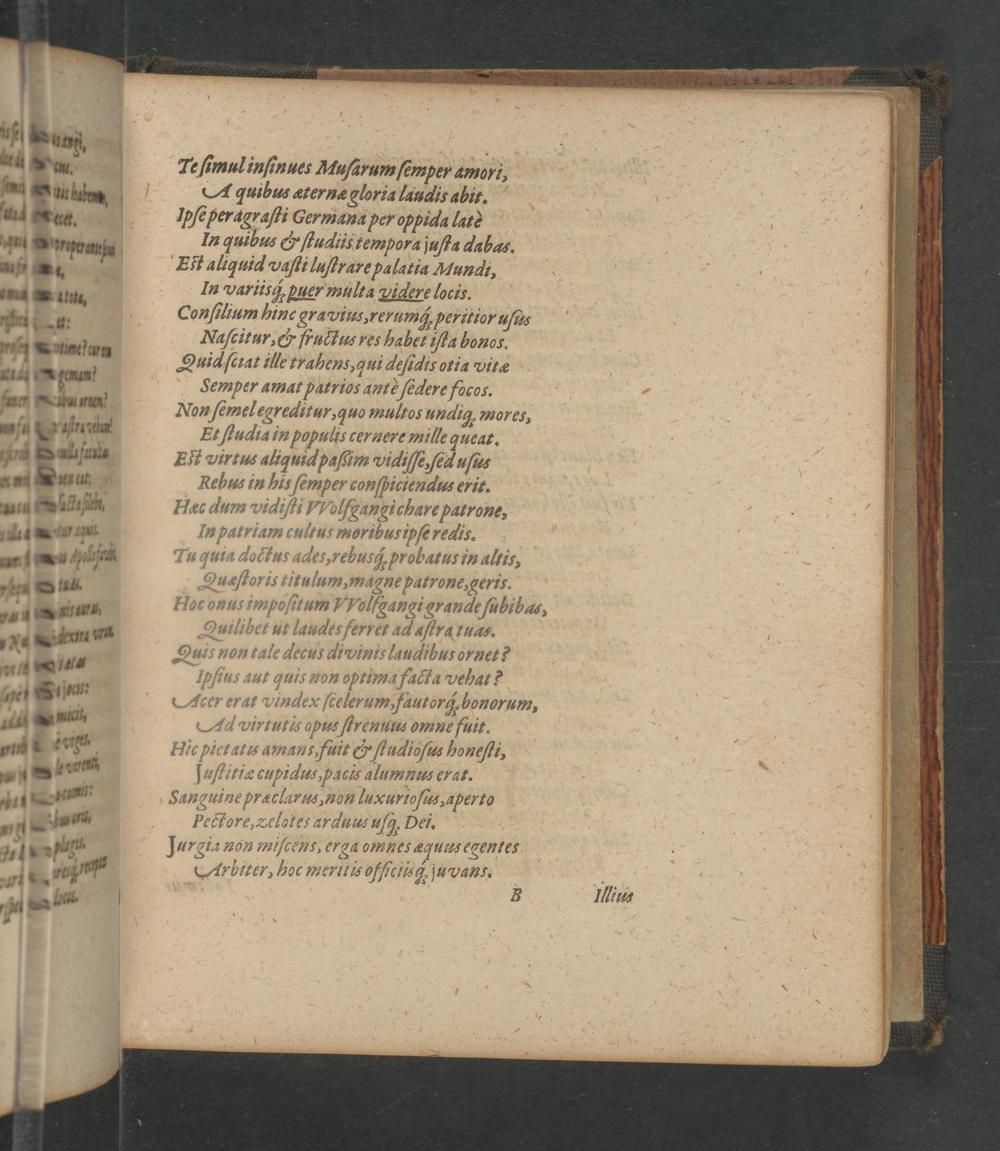 Te ſimul inſinues Muſarum ſemper amori,
A quibus æternæ gloria laudis abit.
Ipſe peragraſti Germana per oppida latè
In quibus & ſtudiis tempora juſta dabas.
Eſt aliquid vaſti luſtrare palatia Mundi,
In variisq́; puer multa videre locis.
Conſilium hinc gravius, rerumq́; peritior uſus
Naſcitur, & fructus res habet iſta bonos.
Quid ſciat ille trahens, qui deſidis otia vitæ
Semper amat patrios antè ſedere focos.
Non ſemel egreditur, quo multos undiq; mores,
Et ſtudia in populis cernere mille queat.
Eſt virtus aliquid paßim vidiſſe, ſed uſus
Rebus in his ſemper conſpiciendus erit.
Hæc dum vidiſti VVolfgangi chare patrone,
In patriam cultus moribus ipſe redis.
Tu quia doctus ades, rebusq́; probatus in altis,
Quæſtoris titulum, magne patrone, geris.
Hoc onus impoſitum VVolfgangi grande ſubibas,
Quilibet ut laudes ferret ad aſtra tuas.
Quis non tale decus divinis laudibus ornet?
Ipſius aut quis non optima facta vehat?
Acer erat vindex ſcelerum, fautorq́; bonorum,
Ad virtutis opus ſtrenuus omne fuit.
Hic pietatis amans, fuit & ſtudioſus honeſti,
Juſtitiæ cupidus, pacis alumnus erat.
Sanguine præclarus, non luxurioſus, aperto
Pectore, zelotes arduus uſq; Dei.
Jurgia non miſcens, erga omnes æquus egentes
Arbiter, hoc meritis officiisq́; juvans.
B Illius